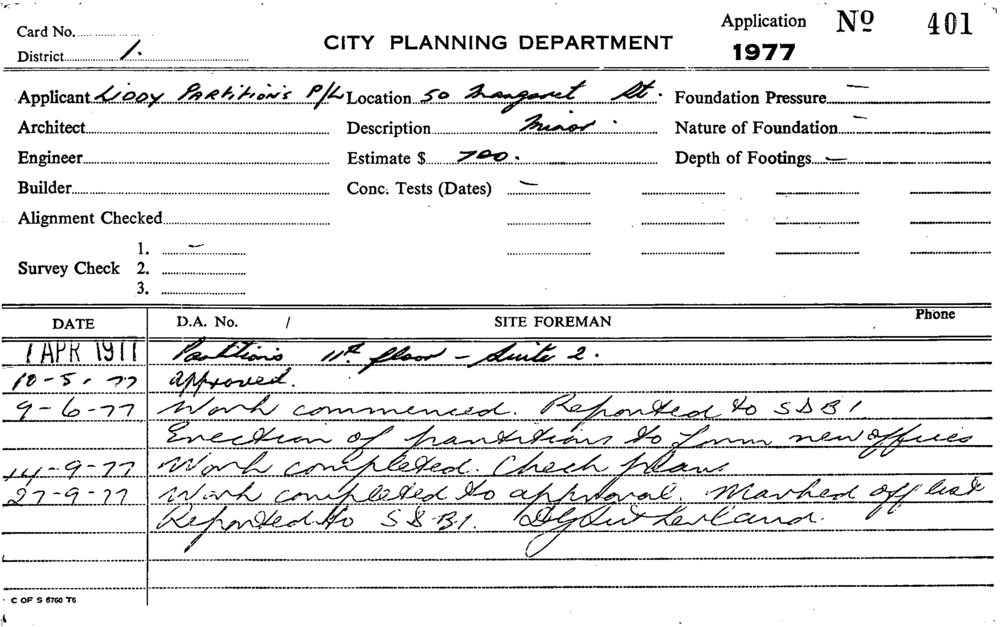 Card No.
Application Nº 401
District 1.
CITY PLANNING DEPARTMENT
1977
Applicant LIDDY PARTITIONS P/L Location 50 Margaret St. Foundation Pressure —
Architect Description Minor. Nature of Foundation —
Engineer Estimate $ 700. Depth of Footings —
Builder Conc. Tests (Dates) —
Alignment Checked
1. —
Survey Check 2.
3.
DATE D.A. No. / SITE FOREMAN Phone
1 APR 1977 Partitions 11th floor - Suite 2.
10-5.77 approved.
9-6-77 Work commenced. Reported to SDB1
Erection of partitions to form new offices
14-9-77 Work completed. Check plans
27-9-77 Work completed to approval. Marked off list
Reported to S.D.B.1. DGSutherland.
C OF S 6760 T6